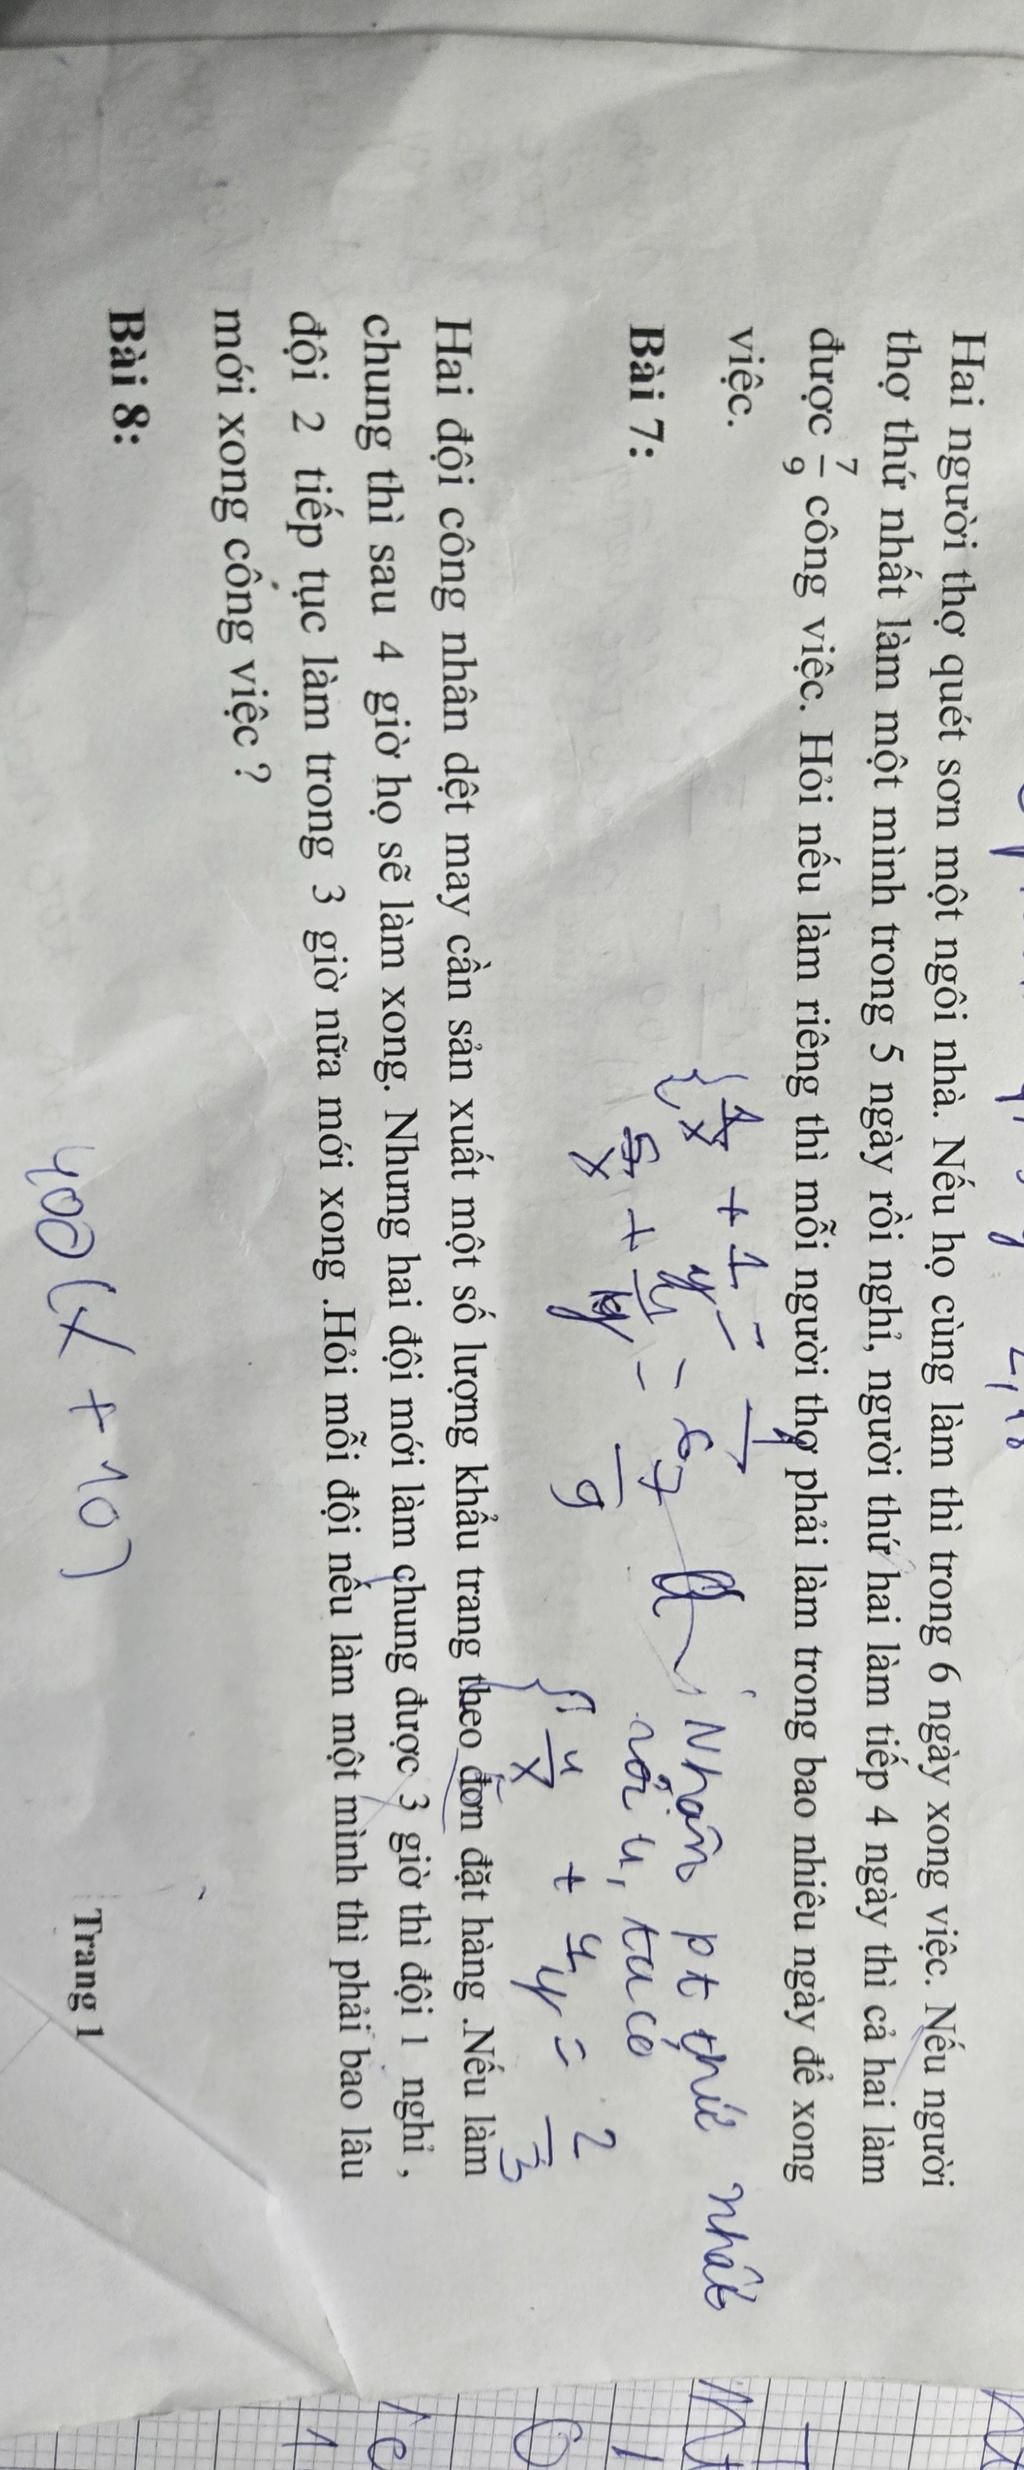 Hai người thợ quét sơn một ngôi nhà. Nếu họ cùng làm thì trong 6 ngày xong việc. Nếu người
thợ thứ nhất làm một mình trong 5 ngày rồi nghỉ, người thứ hai làm tiếp 4 ngày thì cả hai làm
được 7/9 công việc. Hỏi nếu làm riêng thì mỗi người thợ phải làm trong bao nhiêu ngày để xong
việc.
{ 1/x + 1/y = 1/6
Nhân pt thứ nhất
Bài 7:
5/x + 4/y = 7/9
với 4, ta có
{ 4/x + 4/y = 2/3
Hai đội công nhân dệt may cần sản xuất một số lượng khẩu trang theo đơn đặt hàng .Nếu làm
chung thì sau 4 giờ họ sẽ làm xong. Nhưng hai đội mới làm chung được 3 giờ thì đội 1 nghỉ ,
đội 2 tiếp tục làm trong 3 giờ nữa mới xong .Hỏi mỗi đội nếu làm một mình thì phải bao lâu
mới xong công việc ?
Bài 8:
400(x + 10)
Trang 1